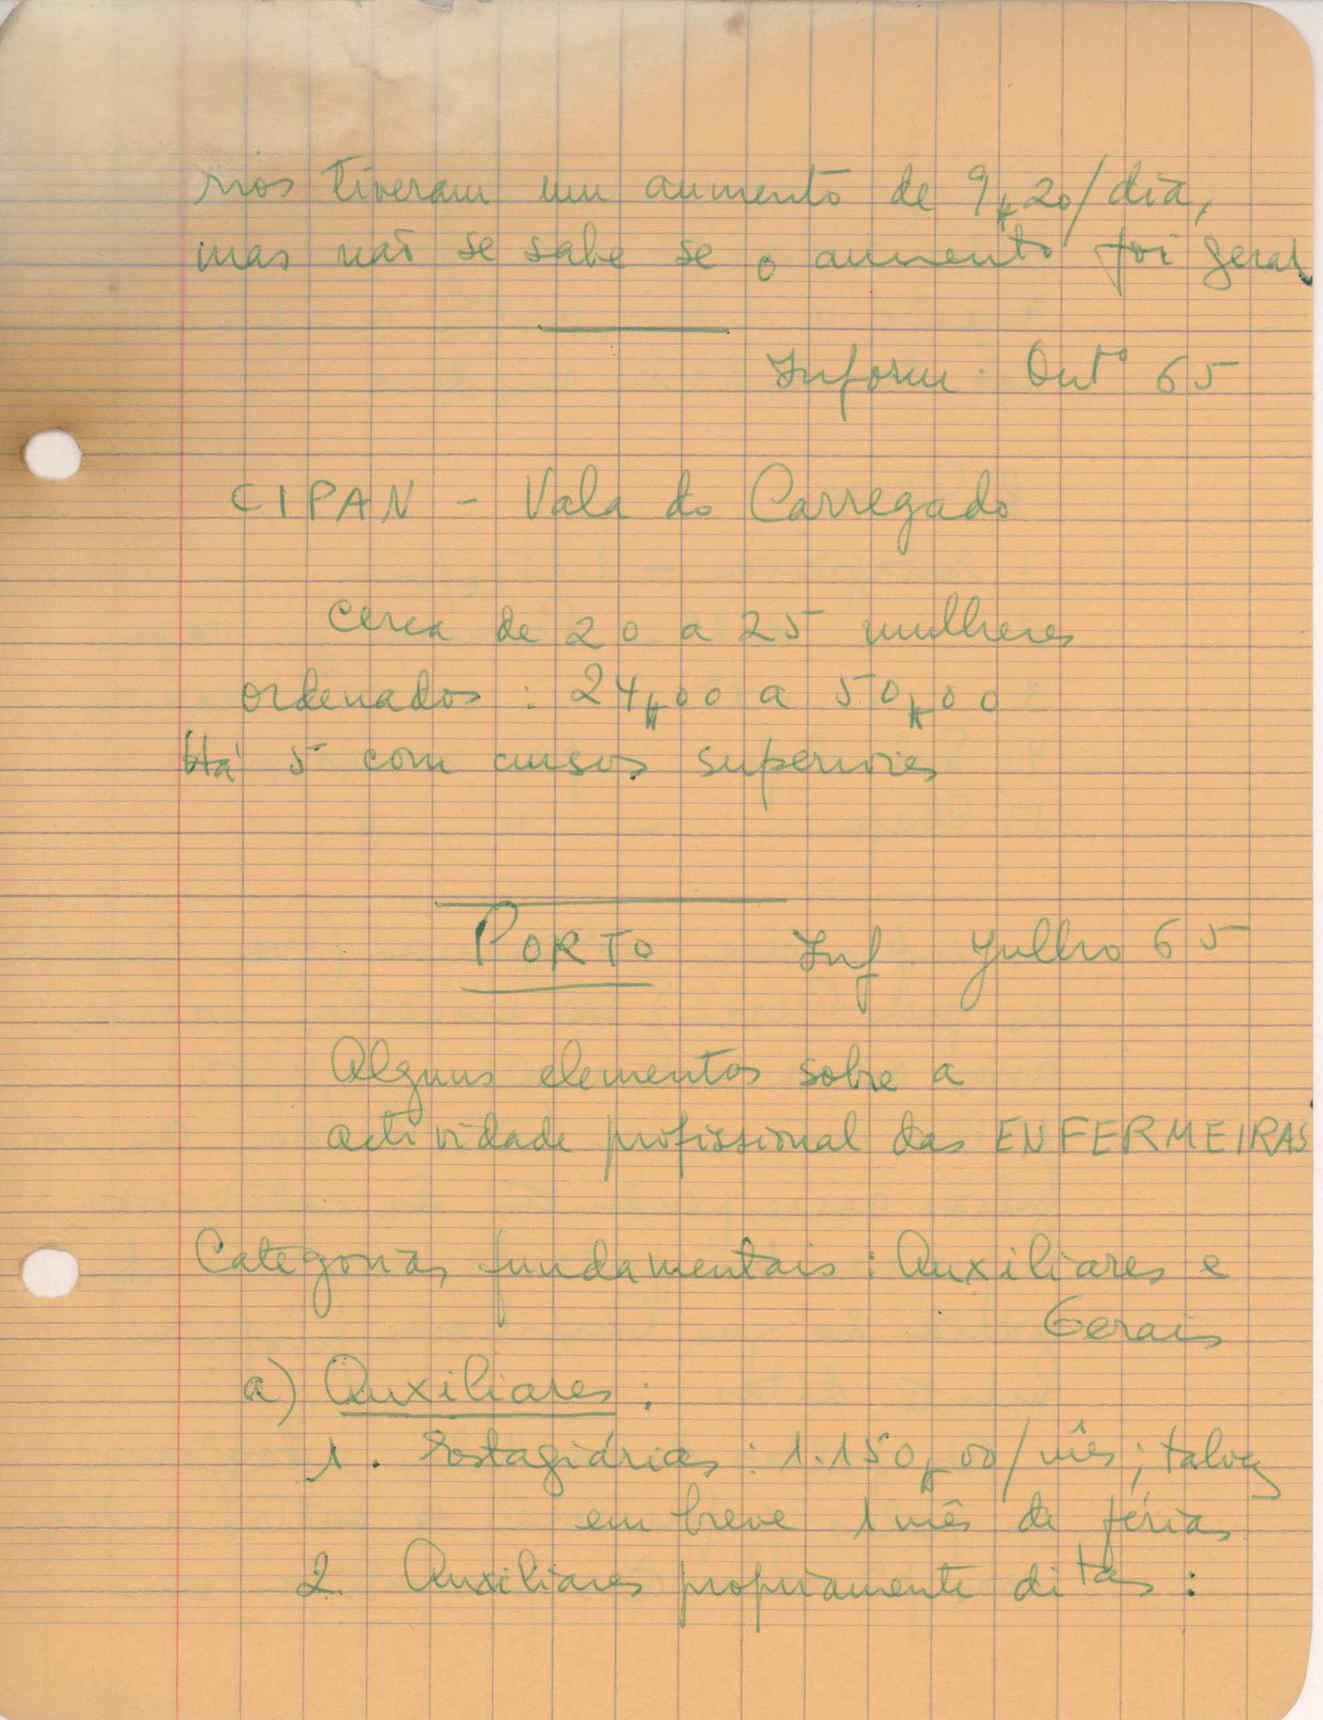 rios tiveram um aumento de 9$20/dia,
mas não se sabe se o aumento foi geral
Inform. Outº 65
CIPAN - Vala do Carregado
cerca de 20 a 25 mulheres
ordenados : 24$00 a 50$00
Há 5 com cursos superiores
PORTO Inf. Julho 65
Alguns elementos sobre a
actividade profissional das ENFERMEIRAS
Categorias fundamentais : Auxiliares e
Gerais
a) Auxiliares :
1. Estagiárias : 1.150$00/mês; talvez
em breve 1 mês de férias
2. Auxiliares propriamente ditas :